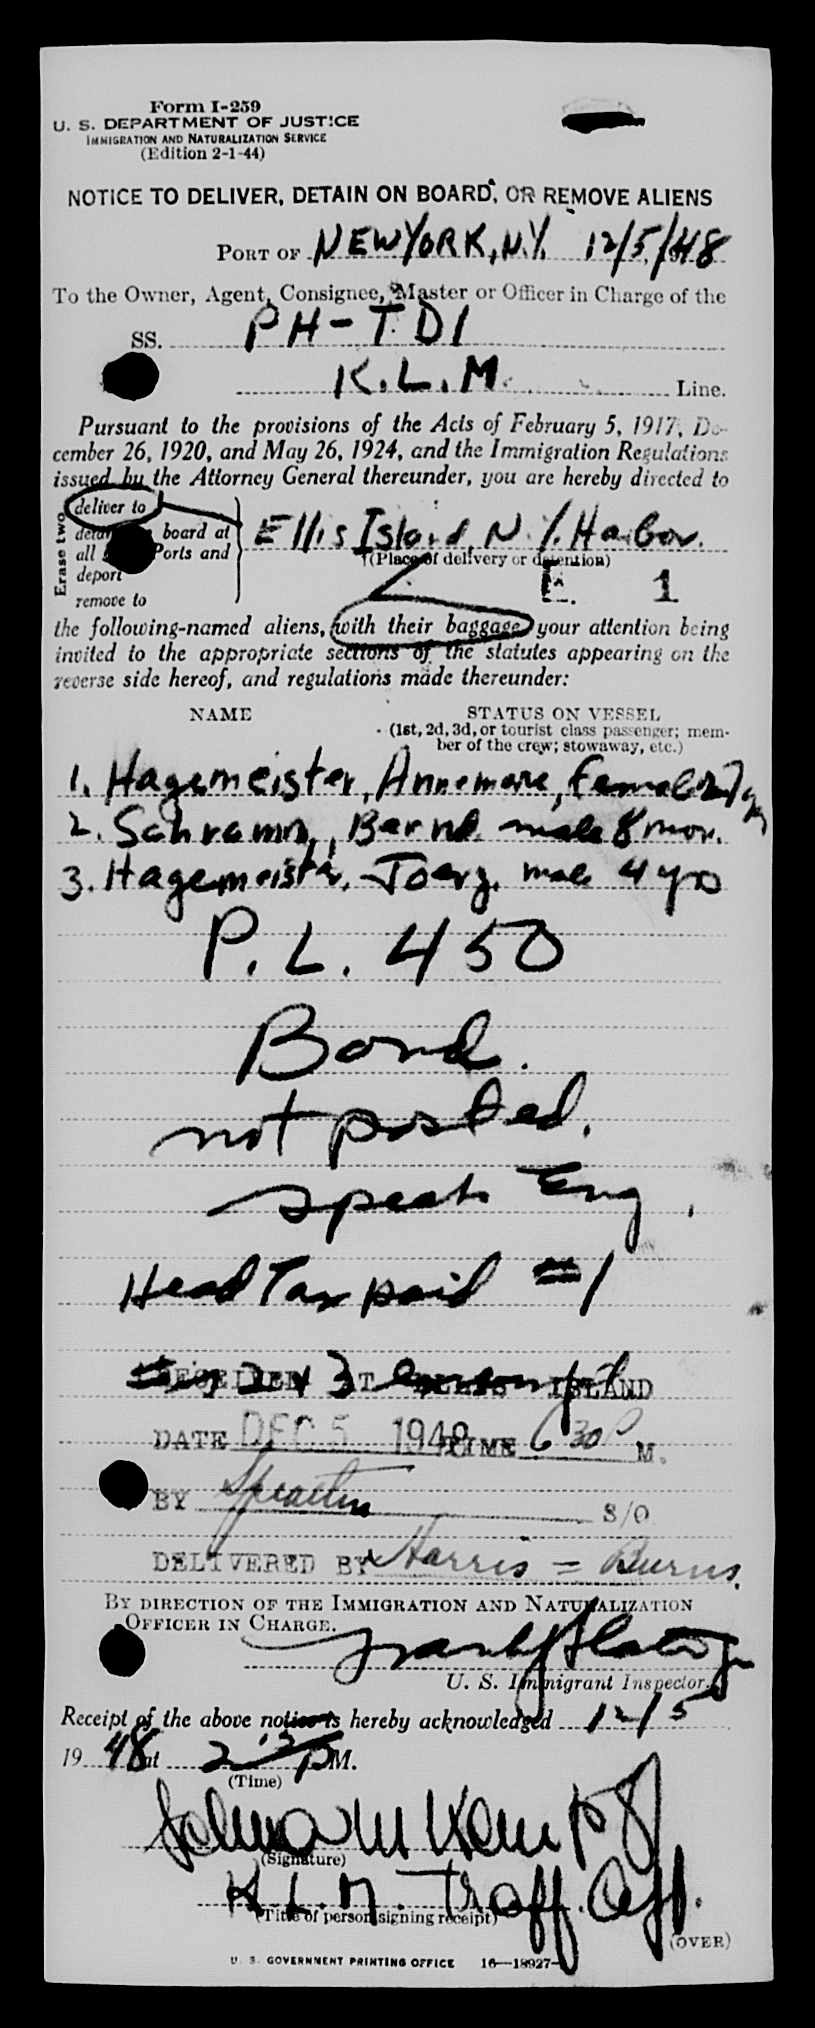 Form I-259
U. S. DEPARTMENT OF JUSTICE
IMMIGRATION AND NATURALIZATION SERVICE
(Edition 2-1-44)
NOTICE TO DELIVER, DETAIN ON BOARD, OR REMOVE ALIENS
PORT OF NEW YORK, N.Y. 12/5/48
To the Owner, Agent, Consignee, Master or Officer in Charge of the
SS. PH-TDI
K.L.M. Line.
Pursuant to the provisions of the Acts of February 5, 1917, De-
cember 26, 1920, and May 26, 1924, and the Immigration Regulations
issued by the Attorney General thereunder, you are hereby directed to
Erase two
deliver to
board at
all Ports and
deport
remove to
Ellis Island, N.Y. Harbor.
(Place of delivery or detention)
E. 1
the following-named aliens, with their baggage, your attention being
invited to the appropriate sections of the statutes appearing on the
reverse side hereof, and regulations made thereunder:
NAME STATUS ON VESSEL
(1st, 2d, 3d, or tourist class passenger; mem-
ber of the crew; stowaway, etc.)
1. Hagemeister, Annemarie, female 27 yrs
2. Schramm, Bernd. male 8 mos.
3. Hagemeister, Joerg. male 4 yrs
P.L. 450
Bond.
not posted.
speak Eng.
Head Tax paid #1
2 & 3 exempt
RECEIVED AT ELLIS ISLAND
DATE DEC 5 1948 TIME 6 30 P M.
BY S/O
DELIVERED BY Harris = Burns.
BY DIRECTION OF THE IMMIGRATION AND NATURALIZATION
OFFICER IN CHARGE.
U. S. Immigrant Inspector.
Receipt of the above notice is hereby acknowledged 12/5
19 48 at 2 15 PM.
(Time)
(Signature)
K.L.M. Traff. Off.
(Title of person signing receipt)
(OVER)
U. S. GOVERNMENT PRINTING OFFICE 16—18927-